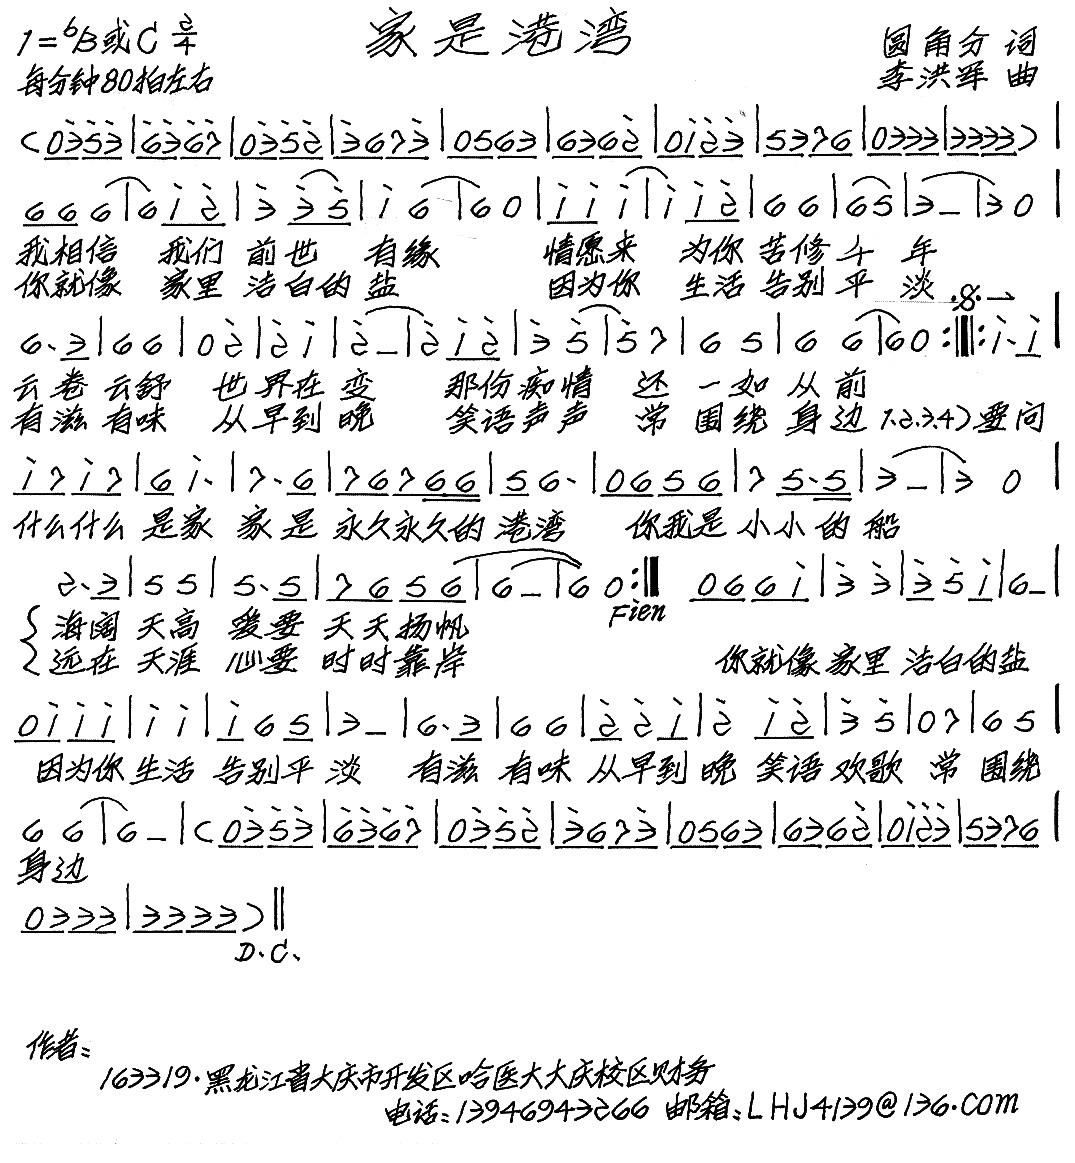 家是港湾
1=ᵇB或C 2/4
圆角分 词
每分钟80拍左右
李洪军 曲
(03̇5̇3̇|6̇3̇6̇7̇|03̇5̇2̇|3̇673̇|0563|6362̇|01̇2̇3̇|5376|0333|3333)|
666|61̇2̇|3̇ 3̇5̇|1̇ 6|60|1̇1̇1̇|1̇1̇1̇2̇|66|65|3–|30|
我相信 我们 前世 有缘 情愿来 为你 苦修 千 年
你就像 家里 洁白的 盐 因为你 生活 告别 平 淡
6·3|66|02̇|2̇1̇|2̇–|2̇1̇2̇|3̇5̇|5̇7|65|6 6|60:‖:1̇·1̇|
云卷 云舒 世界在 变 那份痴情 还 一如 从 前
有滋 有味 从早到 晚 笑语声声 常 围绕 身边 1.2.3.4)要问
1̇71̇7|61̇·|7·6|76766|56·|0656|75·5|3–|30|
什么什么 是家 家是 永久永久的 港湾 你我是 小小的 船
2·3|55|5·5|7656|6–|60:‖ 0661̇|3̇3̇|3̇5̇1̇|6–|
Fien
海阔 天高 爱要 天天扬帆
远在 天涯 心要 时时靠岸 你就像 家里 洁白的盐
01̇1̇1̇|1̇1̇|1̇65|3–|6·3|66|2̇2̇1̇|2̇ 1̇2̇|3̇5̇|07|65|
因为你 生活 告别平 淡 有滋 有味 从早到 晚 笑语 欢歌 常 围绕
66|6–|(03̇5̇3̇|6̇3̇6̇7̇|03̇5̇2̇|3̇673̇|0563|6362̇|01̇2̇3̇|5376|
身边
0333|3333)‖
D.C.
作者:
163319·黑龙江省大庆市开发区哈医大大庆校区财务
电话:13946943266 邮箱:LHJ4139@136.com